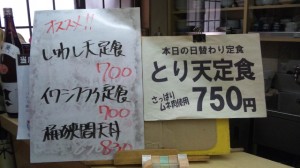 オススメ!!
いわし天定食
700
イワシフライ定食
700
天丼
830
本日の日替わり定食
とり天定食
さっぱり
ムネ肉使用
750円